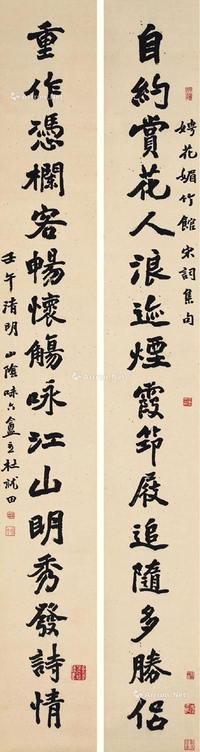 自約賞花人浪迹煙霞笻屐追隨多勝侶
娉花媚竹館宋詞集句
重作憑欄客暢懷觴咏江山明秀發詩情
壬午清明山陰味六盦主杜就田